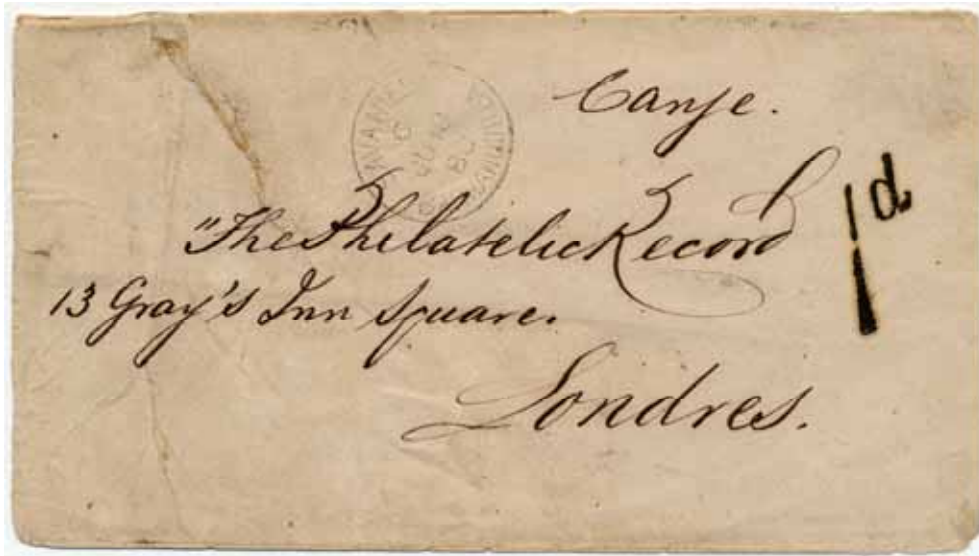 Canje.
"The Philatelic Record
13 Gray's Inn Square.
Londres.
1d